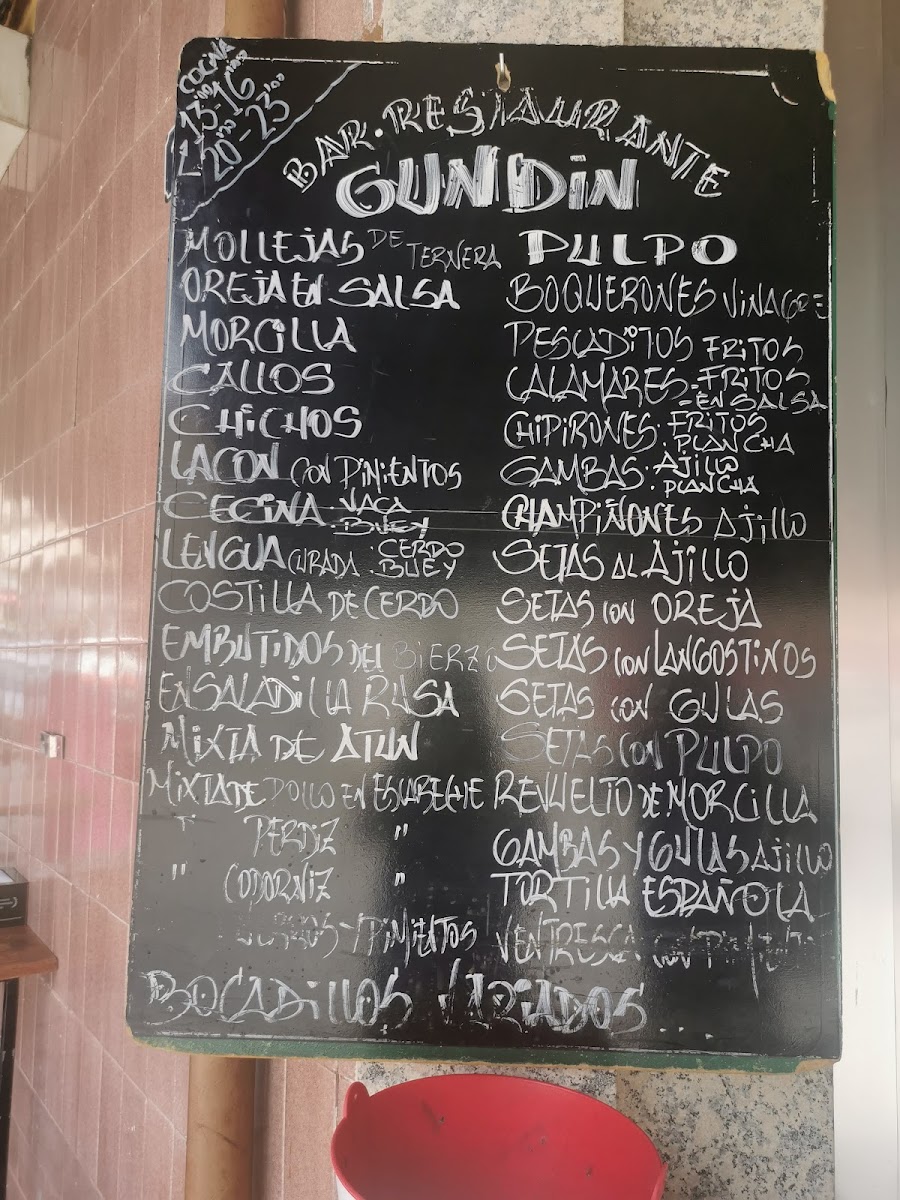 COCINA
13'00-16'00
20'00-23'00
BAR.RESTAURANTE
GUNDIN
MOLLEJAS DE TERNERA
OREJA EN SALSA
MORCILLA
CALLOS
CHICHOS
LACON CON PIMIENTOS
CECINA: VACA
BUEY
LENGUA CURADA: CERDO
BUEY
COSTILLA DE CERDO
EMBUTIDOS DEL BIERZO
ENSALADILLA RUSA
MIXTA DE ATUN
MIXTA DE POLLO EN ESCABECHE
" PERDIZ "
" CODORNIZ "
Y PIMIENTOS
PULPO
BOQUERONES VINAGRE
PESCADITOS FRITOS
CALAMARES - FRITOS
- EN SALSA
CHIPIRONES. FRITOS
. PLANCHA
GAMBAS. AJILLO
. PLANCHA
CHAMPIÑONES AJILLO
SETAS AL AJILLO
SETAS CON OREJA
SETAS CON LANGOSTINOS
SETAS CON GULAS
SETAS CON PULPO
REVUELTO DE MORCILLA
GAMBAS Y GULAS AJILLO
TORTILLA ESPAÑOLA
VENTRESCA CON PIMIENTO
BOCADILLOS VARIADOS...